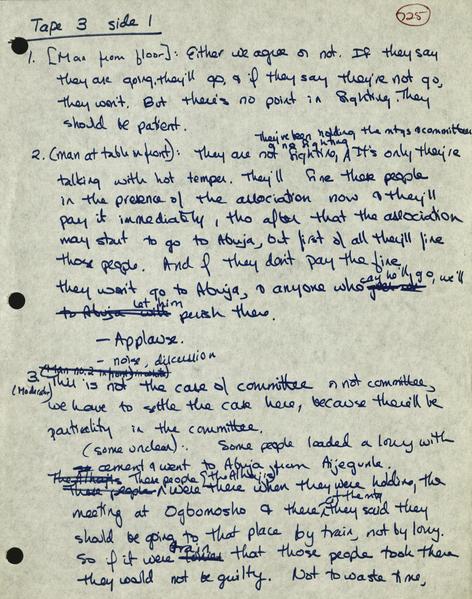 Tape 3 side 1
725
1. [Man from floor]: Either we agree or not. If they say
they are going, they'll go, & if they say they're not go,
they won't. But there's no point in fighting. They
should be patient.
They've been holding the mtgs & committee
& no fighting
2. (man at table in front): They are not fighting, It's only they're
talking with hot temper. They'll fine these people
in the presence of the association now & they'll
pay it immediately, tho after that the association
may start to go to Abuja, but first of all they'll fine
those people. And if they don't pay the fine,
they won't go to Abuja, & anyone who say he'll go, we'll
to Abuja let him perish there.
- Applause.
- noise, discussion
3. (Man no. 2 in front)
(Moderator) This is not the case of committee or not committee,
we have to settle the case here, because there'll be
partiality in the committee.
(some unclear): Some people loaded a lorry with
cement & went to Abuja from Aijegunle.
These people (the Alhajis) were there when they were holding the
meeting at Ogbomosho & there at the mtg they said they
should be going to that place by train, not by lorry.
So if it were train that those people took there
they would not be guilty. Not to waste time,